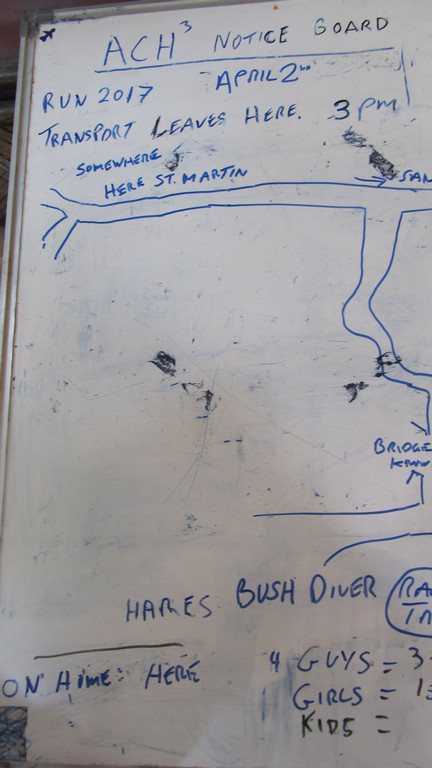 ACH³ NOTICE BOARD
APRIL 2ND
RUN 2017
TRANSPORT LEAVES HERE. 3pm
SOMEWHERE
HERE ST. MARTIN
SAN
BRIDGE
HARES BUSH DIVER
ON HOME: HERE
4 GUYS = 3
GIRLS = 1
KIDS =